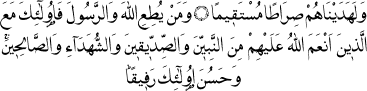 وَلَهَدَيْنَاهُمْ صِرَاطًا مُسْتَقِيمًا ۞ وَمَنْ يُطِعِ اللهَ وَالرَّسُولَ فَأُولَٰئِكَ مَعَ
الَّذِينَ أَنْعَمَ اللهُ عَلَيْهِمْ مِنَ النَّبِيِّنَ وَالصِّدِّيقِينَ وَالشُّهَدَاءِ وَالصَّالِحِينَ
وَحَسُنَ أُولَٰئِكَ رَفِيقًا